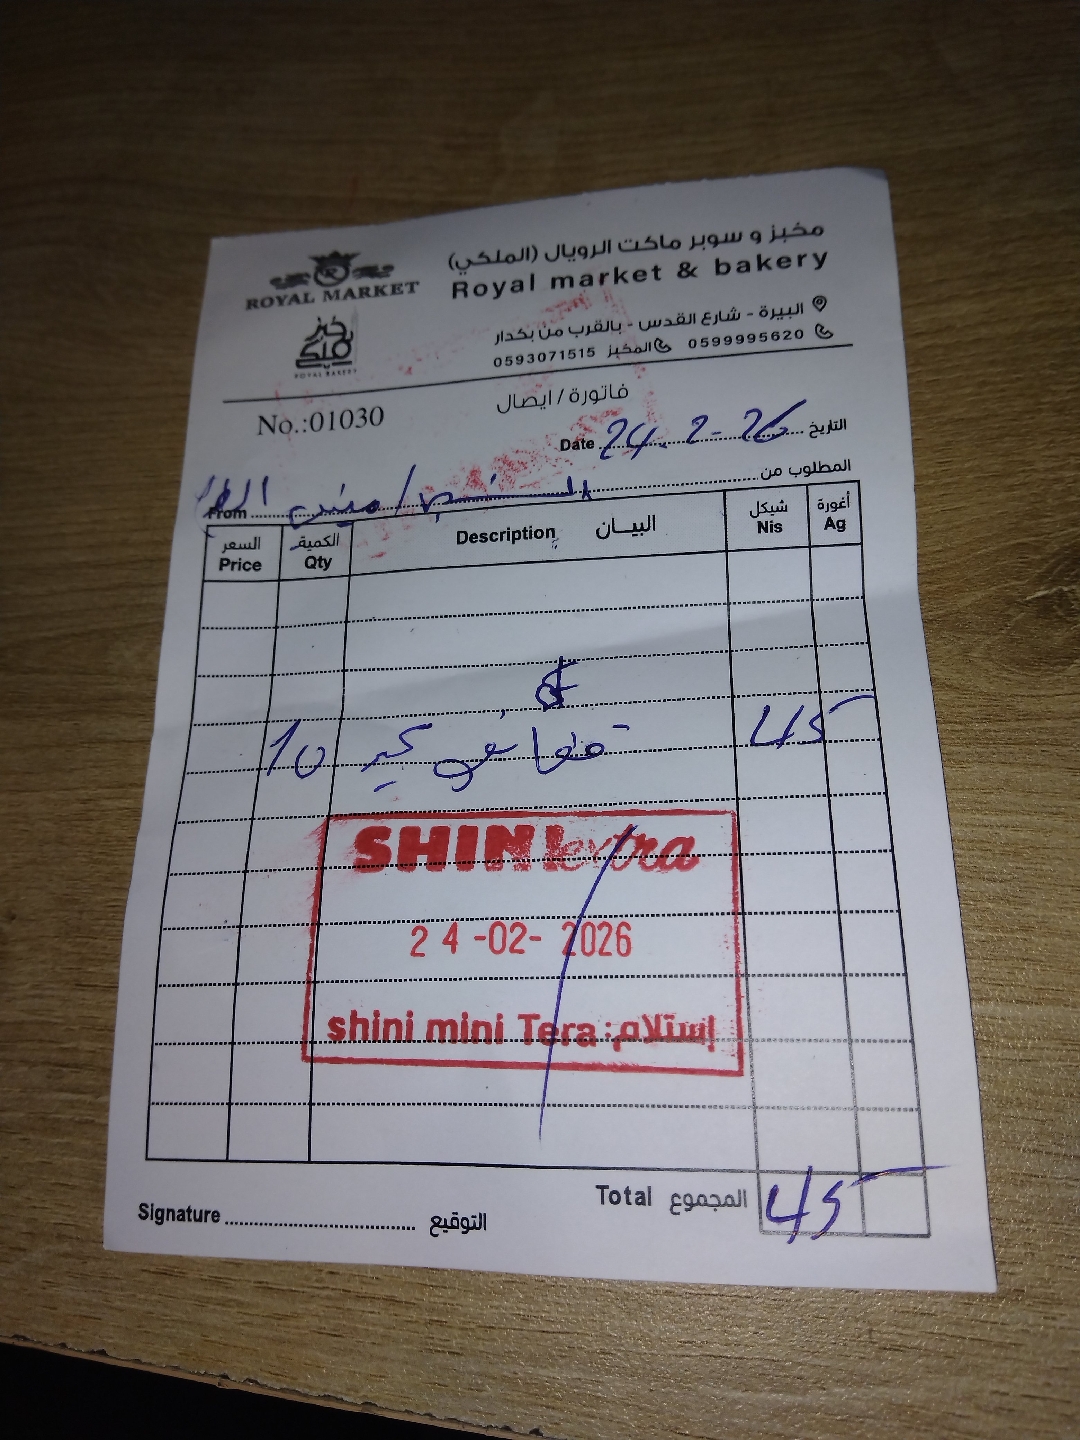 ROYAL MARKET
مخبز و سوبر ماكت الرويال (الملكي)
Royal market & bakery
البيرة - شارع القدس - بالقرب من بكدار
0599995620 المخبز 0593071515
ROYAL BAKERY
فاتورة / ايصال
No.:01030
Date 24.2-26 التاريخ
المطلوب من
From
السعر الكمية البيــان شيكل أغورة
Price Qty Description Nis Ag
10 قطايف كبير 45
SHINI extra
24-02-2026
shini mini Tera : إستلام
Total المجموع 45
Signature التوقيع